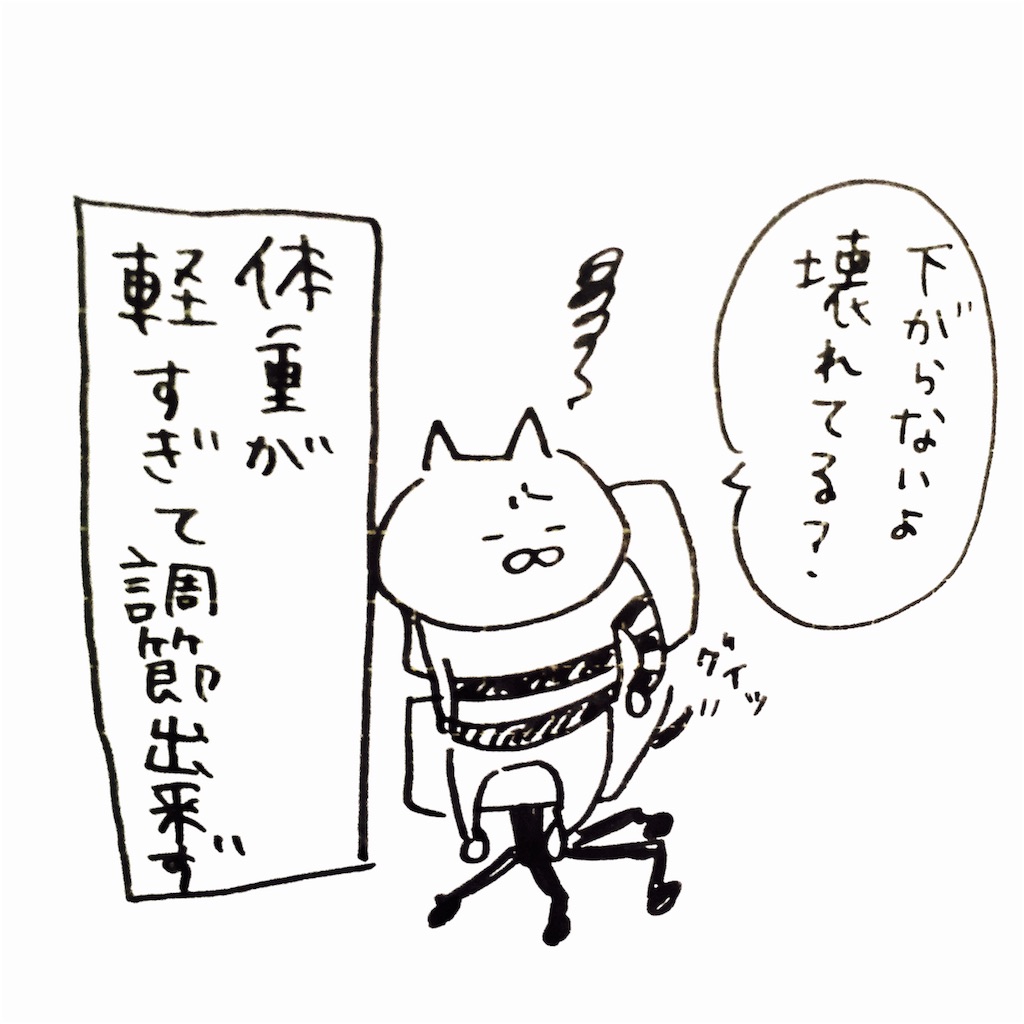 下がらないよ
壊れてる?
グイッ
体重が
軽すぎて調節出来ず